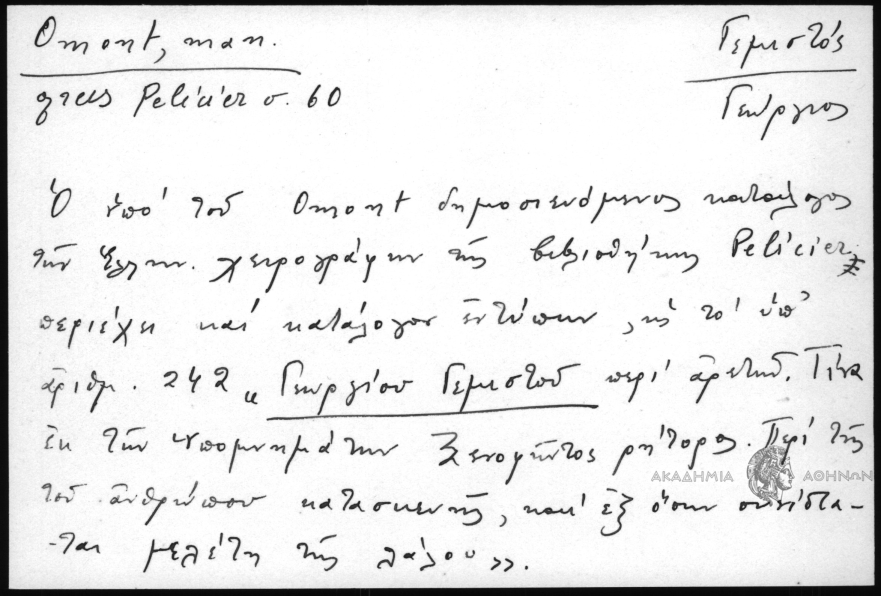 Omont, man. Γεμιστός
grecs Pelicier σ. 60 Γεώργιος
Ὁ ὑπὸ τοῦ Omont δημοσιευόμενος κατάλογος
τῶν ἑλλην. χειρογράφων τῆς βιβλιοθήκης Pelicier
περιέχει καὶ κατάλογον ἐντύπων, ὡς τὸ ὑπ'
ἀριθμ. 242 " Γεωργίου Γεμιστοῦ περὶ ἀρετῆς. Τινα
ἐκ τῶν ὑπομνημάτων Ξενοφῶντος ρήτορος. Περὶ τῆς
τοῦ ἀνθρώπου κατασκευῆς, καὶ ἐξ ὅσων συνίστα-
-ται μελέτη τῆς».
ΑΚΑΔΗΜΙΑ ΑΘΗΝΩΝ